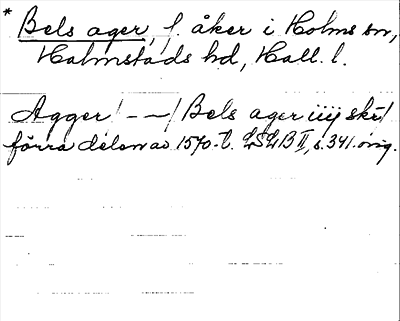 * Bels ager, f. åker i Holms sn,
Halmstads hd, Hall. l.
Agger/ - - / Bels ager iiij skr/
förra delen av 1570-t. LSLB II, s. 341. orig.